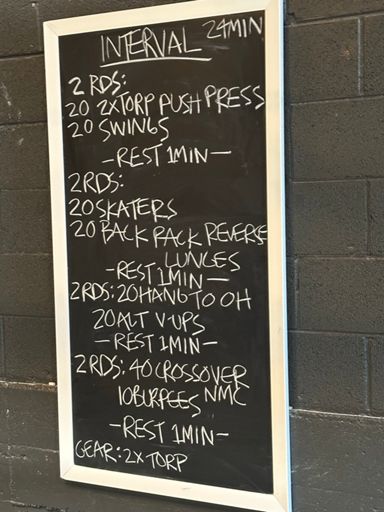 INTERVAL 24MIN
2 RDS:
20 2XTORP PUSH PRESS
20 SWINGS
-REST 1MIN-
2RDS:
20 SKATERS
20 BACK PACK REVERSE
LUNGES
-REST 1MIN-
2RDS: 20 HANG TO OH
20 ALT V-UPS
-REST 1MIN-
2RDS: 40 CROSSOVER
10 BURPEES NMC
-REST 1MIN-
GEAR: 2X TORP